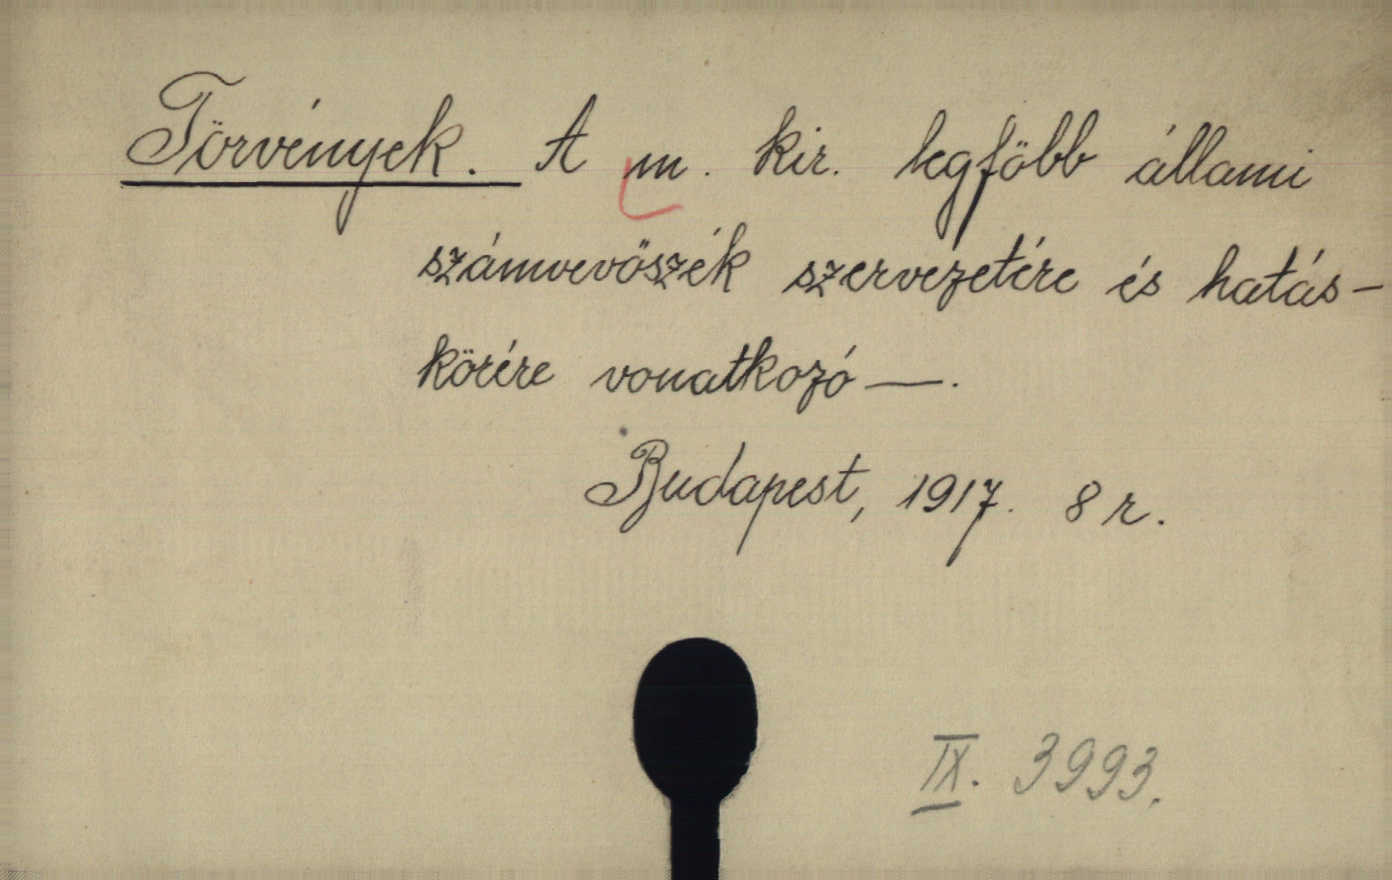 Törvények. A m. kir. legföbb állami
számvevöszék szervezetére és hatás-
körére vonatkozó —.
Budapest, 1917. 8 r.
IX. 3993.